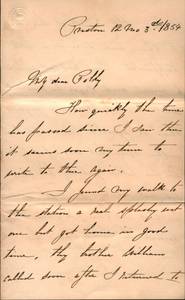 Preston 12 Mo 3rd/1854
My dear Polly
How quickly the time
has passed since I saw thee
it seems soon my turn to
write to thee again.
I found my walk to
the station a real splashy wet
one but got home in good
time, thy brother William
called soon after I returned to